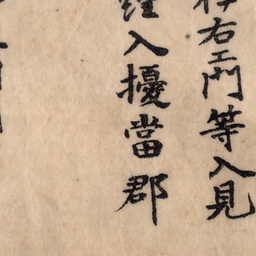 右エ門等入見
入擾當郡